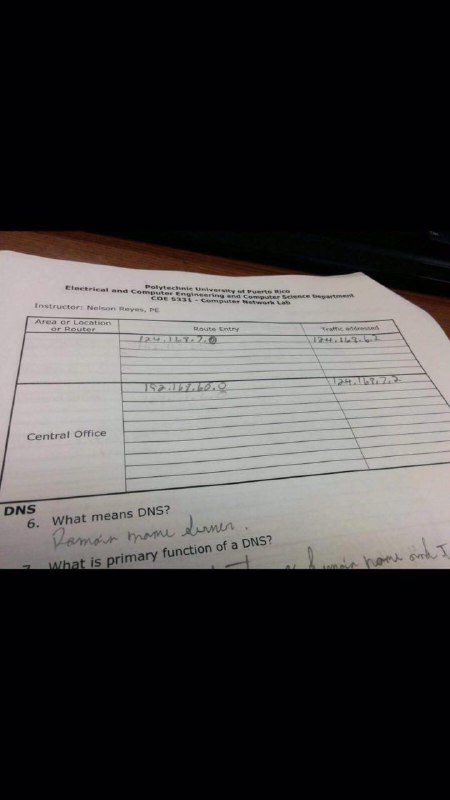 Polytechnic University of Puerto Rico
Electrical and Computer Engineering and Computer Science Department
COE 5331 - Computer Network Lab
Instructor: Nelson Reyes, PE
Area or Location or Router
Route Entry
Traffic addressed
124.168.7.0
124.168.6.2
192.168.60.0
124.168.7.2
Central Office
DNS
6. What means DNS?
Domain name server.
7. What is primary function of a DNS?
domain name and I